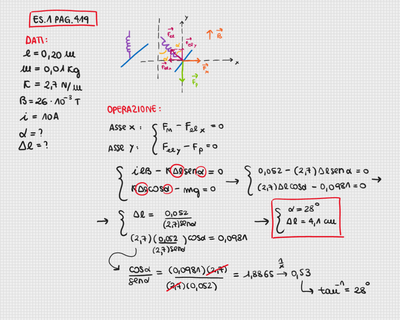 ES.1 PAG. 419
DATI:
ℓ = 0,20 m
m = 0,01 Kg
K = 2,7 N/m
B = 26 · 10⁻² T
i = 10A
α = ?
Δℓ = ?
y
x
B
OPERAZIONE:
Asse x: { Fₘ − Fₑₗ ₓ = 0
Asse y: { Fₑₗ ᵧ − Fₚ = 0
{ iℓB − KΔℓsenα = 0 → { 0,052 − (2,7)Δℓsenα = 0
{ KΔℓcosα − mg = 0 { (2,7)Δℓcosα − 0,0981 = 0 →
→ { Δℓ = 0,052 / (2,7)senα
{ (2,7)(0,052 / (2,7)senα) cosα = 0,0981
{ α = 28°
{ Δℓ = 4,1 cm
cosα / senα = (0,0981)(2,7) / (2,7)(0,052) = 1,8865 → 1/x 0,53
↳ tan⁻¹ = 28°